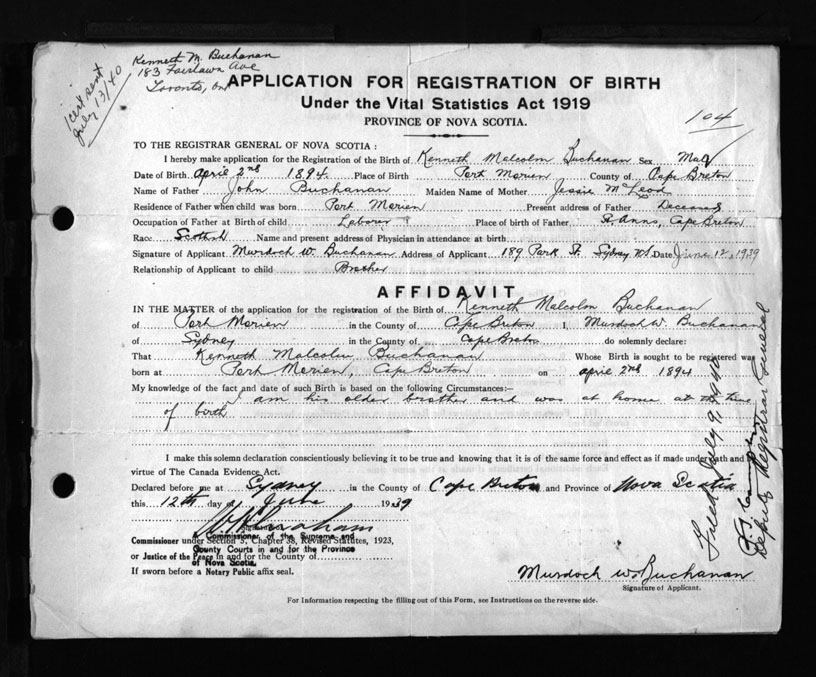 Kenneth M. Buchanan
183 Fairlawn Ave
Toronto, Ont
1 cert sent
July 13/40
APPLICATION FOR REGISTRATION OF BIRTH
Under the Vital Statistics Act 1919
PROVINCE OF NOVA SCOTIA.
104
TO THE REGISTRAR GENERAL OF NOVA SCOTIA:
I hereby make application for the Registration of the Birth of Kenneth Malcolm Buchanan Sex Male
Date of Birth April 2nd 1894 Place of Birth Port Morien County of Cape Breton
Name of Father John Buchanan Maiden Name of Mother Jessie McLeod
Residence of Father when child was born Port Morien Present address of Father Deceased
Occupation of Father at Birth of child Laborer Place of birth of Father St. Anns, Cape Breton
Race Scotch Name and present address of Physician in attendance at birth
Signature of Applicant Murdoch W. Buchanan Address of Applicant 189 Park St. Sydney N.S. Date June 12, 1939
Relationship of Applicant to child Brother
AFFIDAVIT
IN THE MATTER of the application for the registration of the Birth of Kenneth Malcolm Buchanan
of Port Morien in the County of Cape Breton I, Murdoch W. Buchanan
of Sydney in the County of Cape Breton do solemnly declare:
That Kenneth Malcolm Buchanan Whose Birth is sought to be registered was
born at Port Morien, Cape Breton on April 2nd 1894
My knowledge of the fact and date of such Birth is based on the following Circumstances:—
I am his older brother and was at home at the time
of birth
I make this solemn declaration conscientiously believing it to be true and knowing that it is of the same force and effect as if made under oath and
virtue of The Canada Evidence Act.
Declared before me at Sydney in the County of Cape Breton and Province of Nova Scotia
this 12th day of June 1939
A Commissioner of the Supreme and
Commissioner under Section 3, Chapter 38, Revised Statutes, 1923,
County Courts in and for the Province
or Justice of the Peace in and for the County of
of Nova Scotia.
If sworn before a Notary Public affix seal.
Murdoch W. Buchanan
Signature of Applicant.
For Information respecting the filling out of this Form, see Instructions on the reverse side.
Filed July 9, 1940
Deputy Registrar General